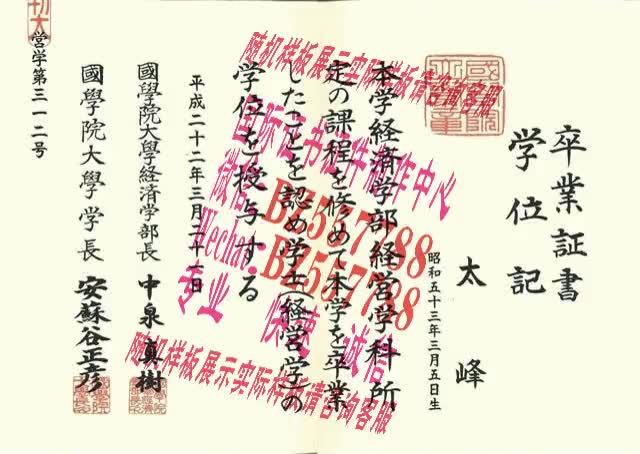 卒業証書
学位記
太峰
昭和五十三年三月五日生
本学経済学部経営学科所
定の課程を修めて本学を卒業
したことを認め学士(経営学)の
学位を授与する
平成二十二年三月二十一日
國學院大學経済学部長 中泉真樹
國學院大學学長 安蘇谷正彦
営学第三一二号
随机样板展示实际样板请咨询客服
国际证书证件制作中心
微信 BZ557788
Wechat: BZ557788
专业 快速 诚信
随机样板展示实际样板请咨询客服